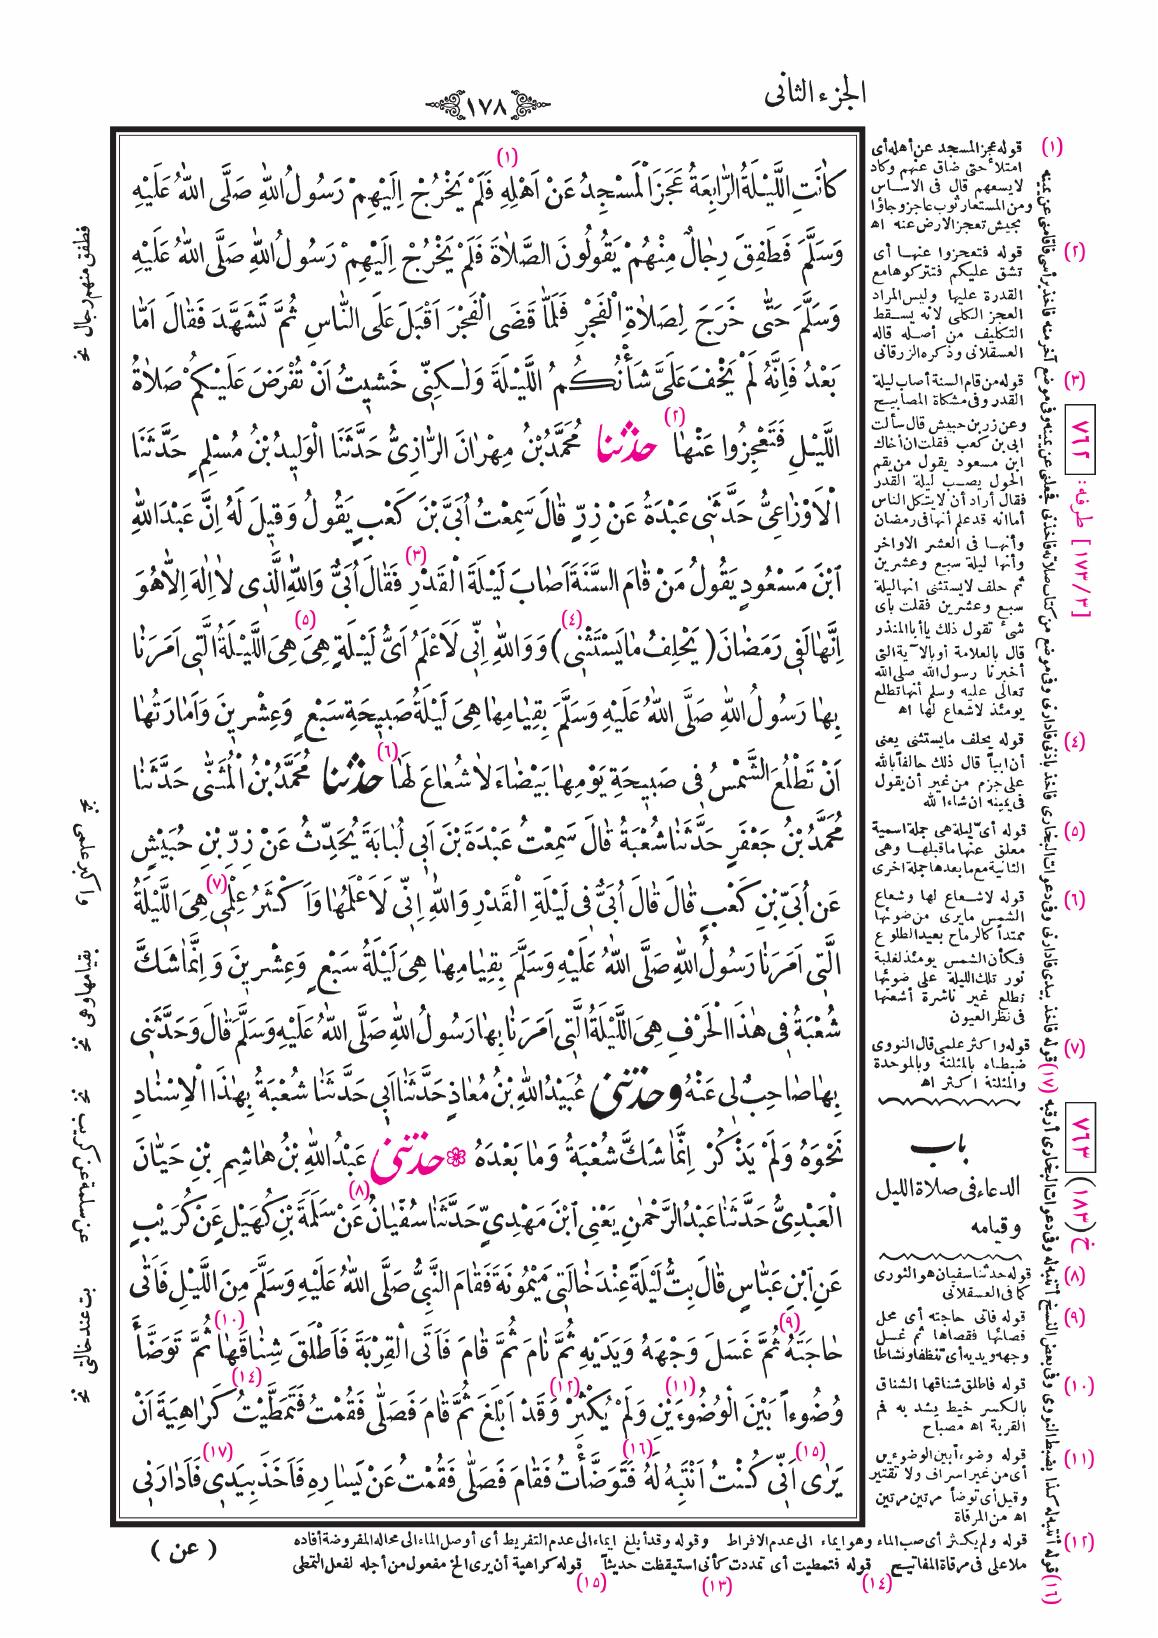 الجزء الثانى
١٧٨
كَانَتِ اللَّيْلَةُ الرَّابِعَةُ عَجَزَ الْمَسْجِدُ عَنْ اَهْلِهِ فَلَمْ يَخْرُجْ اِلَيْهِمْ رَسُولُ اللهِ صَلَّى اللهُ عَلَيْهِ (١)
وَسَلَّمَ فَطَفِقَ رِجَالٌ مِنْهُمْ يَقُولُونَ الصَّلَاةَ فَلَمْ يَخْرُجْ اِلَيْهِمْ رَسُولُ اللهِ صَلَّى اللهُ عَلَيْهِ
وَسَلَّمَ حَتّٰى خَرَجَ لِصَلَاةِ الْفَجْرِ فَلَمَّا قَضَى الْفَجْرَ اَقْبَلَ عَلَى النَّاسِ ثُمَّ تَشَهَّدَ فَقَالَ اَمَّا
بَعْدُ فَاِنَّهُ لَمْ يَخْفَ عَلَىَّ شَأْنُكُمُ اللَّيْلَةَ وَلٰكِنِّى خَشِيتُ اَنْ تُفْرَضَ عَلَيْكُمْ صَلَاةُ
اللَّيْلِ فَتَعْجِزُوا عَنْهَا (٢) حدثنا مُحَمَّدُ بْنُ مِهْرَانَ الرَّازِىُّ حَدَّثَنَا الْوَلِيدُ بْنُ مُسْلِمٍ حَدَّثَنَا
الْاَوْزَاعِىُّ حَدَّثَنِى عَبْدَةُ عَنْ زِرٍّ قَالَ سَمِعْتُ اُبَىَّ بْنَ كَعْبٍ يَقُولُ وَقِيلَ لَهُ اِنَّ عَبْدَ اللهِ
ابْنَ مَسْعُودٍ يَقُولُ مَنْ قَامَ السَّنَةَ اَصَابَ لَيْلَةَ الْقَدْرِ (٣) فَقَالَ اُبَىٌّ وَاللهِ الَّذِى لَا اِلٰهَ اِلَّا هُوَ
اِنَّهَا لَفِى رَمَضَانَ ( يَحْلِفُ مَا يَسْتَثْنِى ) (٤) وَ وَاللهِ اِنِّى لَاَعْلَمُ اَىُّ لَيْلَةٍ هِىَ (٥) هِىَ اللَّيْلَةُ الَّتِى اَمَرَنَا
بِهَا رَسُولُ اللهِ صَلَّى اللهُ عَلَيْهِ وَسَلَّمَ بِقِيَامِهَا هِىَ لَيْلَةُ صَبِيحَةِ سَبْعٍ وَعِشْرِينَ وَاَمَارَتُهَا
اَنْ تَطْلُعَ الشَّمْسُ فِى صَبِيحَةِ يَوْمِهَا بَيْضَاءَ لَا شُعَاعَ لَهَا (٦) حدثنا مُحَمَّدُ بْنُ الْمُثَنّٰى حَدَّثَنَا
مُحَمَّدُ بْنُ جَعْفَرٍ حَدَّثَنَا شُعْبَةُ قَالَ سَمِعْتُ عَبْدَةَ بْنَ اَبِى لُبَابَةَ يُحَدِّثُ عَنْ زِرِّ بْنِ حُبَيْشٍ
عَنْ اُبَىِّ بْنِ كَعْبٍ قَالَ قَالَ اُبَىٌّ فِى لَيْلَةِ الْقَدْرِ وَاللهِ اِنِّى لَاَعْلَمُهَا وَاَكْثَرُ عِلْمِى (٧) هِىَ اللَّيْلَةُ
الَّتِى اَمَرَنَا رَسُولُ اللهِ صَلَّى اللهُ عَلَيْهِ وَسَلَّمَ بِقِيَامِهَا هِىَ لَيْلَةُ سَبْعٍ وَعِشْرِينَ وَاِنَّمَا شَكَّ
شُعْبَةُ فِى هٰذَا الْحَرْفِ هِىَ اللَّيْلَةُ الَّتِى اَمَرَنَا بِهَا رَسُولُ اللهِ صَلَّى اللهُ عَلَيْهِ وَسَلَّمَ قَالَ وَحَدَّثَنِى
بِهَا صَاحِبٌ لِى عَنْهُ وحدثنى عُبَيْدُ اللهِ بْنُ مُعَاذٍ حَدَّثَنَا اَبِى حَدَّثَنَا شُعْبَةُ بِهٰذَا الْاِسْنَادِ
نَحْوَهُ وَلَمْ يَذْكُرْ اِنَّمَا شَكَّ شُعْبَةُ وَمَا بَعْدَهُ ❁ حدثنى عَبْدُ اللهِ بْنُ هَاشِمِ بْنِ حَيَّانَ
الْعَبْدِىُّ حَدَّثَنَا عَبْدُ الرَّحْمٰنِ يَعْنِى ابْنَ مَهْدِىٍّ حَدَّثَنَا سُفْيَانُ (٨) عَنْ سَلَمَةَ بْنِ كُهَيْلٍ عَنْ كُرَيْبٍ
عَنِ ابْنِ عَبَّاسٍ قَالَ بِتُّ لَيْلَةً عِنْدَ خَالَتِى مَيْمُونَةَ فَقَامَ النَّبِىُّ صَلَّى اللهُ عَلَيْهِ وَسَلَّمَ مِنَ اللَّيْلِ فَاَتٰى
حَاجَتَهُ (٩) ثُمَّ غَسَلَ وَجْهَهُ وَيَدَيْهِ ثُمَّ نَامَ ثُمَّ قَامَ فَاَتَى الْقِرْبَةَ فَاَطْلَقَ شِنَاقَهَا (١٠) ثُمَّ تَوَضَّأَ
وُضُوءاً بَيْنَ الْوُضُوءَيْنِ (١١) وَلَمْ يُكْثِرْ (١٢) وَقَدْ اَبْلَغَ ثُمَّ قَامَ فَصَلّٰى فَقُمْتُ فَتَمَطَّيْتُ (١٤) كَرَاهِيَةَ اَنْ
يَرٰى (١٥) اَنِّى كُنْتُ اَنْتَبِهُ لَهُ (١٦) فَتَوَضَّأْتُ فَقَامَ فَصَلّٰى فَقُمْتُ عَنْ يَسَارِهِ فَاَخَذَ بِيَدِى فَاَدَارَنِى (١٧)
( عن )
(١) قوله عجز المسجد عن أهله أى
امتلأ حتى ضاق عنهم وكاد
لايسعهم قال فى الاساس
ومن المستعار ثوب عاجز وجاؤا
بجيش تعجز الارض عنه اه
(٢) قوله فتعجزوا عنها أى
تشق عليكم فتتركوها مع
القدرة عليها وليس المراد
العجز الكلى لانه يسقط
التكليف من أصله قاله
العسقلانى وذكره الزرقانى
(٣) قوله من قام السنة أصاب ليلة
القدر وفى مشكاة المصابيح
وعن زر بن حبيش قال سألت
ابى بن كعب فقلت ان أخاك
ابن مسعود يقول من يقم
الحول يصب ليلة القدر
فقال أراد أن لايتكل الناس
أما انه قد علم أنها فى رمضان
وأنها فى العشر الاواخر
وأنها ليلة سبع وعشرين
ثم حلف لايستثنى انها ليلة
سبع وعشرين فقلت باى
شىء تقول ذلك يا أبا المنذر
قال بالعلامة أو بالآية التى
أخبرنا رسول الله صلى الله
تعالى عليه وسلم أنها تطلع
يومئذ لاشعاع لها اه
(٤) قوله يحلف ما يستثنى يعنى
أن ابياً قال ذلك حالفاً بالله
على جزم من غير أن يقول
فى يمينه ان شاء الله
(٥) قوله أى ليلة هى جملة اسمية
معلق عنها ما قبلها وهى
الثانية مع ما بعدها جملة اخرى
(٦) قوله لاشعاع لها وشعاع
الشمس مايرى من ضوئها
ممتداً كالرماح بعيد الطلوع
فكأن الشمس يومئذ لغلبة
نور تلك الليلة على ضوئها
تطلع غير ناشرة أشعتها
فى نظر العيون
(٧) قوله واكثر علمى قال النووى
ضبطناه بالمثلثة وبالموحدة
والمثلثة اكثر اه
باب
الدعاء فى صلاة الليل
وقيامه
(٨) قوله حدثنا سفيان هو الثورى
كما فى العسقلانى
(٩) قوله فاتى حاجته أى محل
قضائها فقضاها ثم غسل
وجهه ويديه أى تنظفا ونشاطا
(١٠) قوله فاطلق شناقها الشناق
بالكسر خيط يشد به فم
القربة اه مصباح
(١١) قوله وضوءاً بين الوضوءين
أى من غير اسراف ولا تقتير
وقيل أى توضأ مرتين مرتين
اه من المرقاة
(١٢) قوله ولم يكثر أى صب الماء وهو ايماء الى عدم الافراط وقوله وقد أبلغ ايماء الى عدم التفريط أى أوصل الماء الى محاله المفروضة أفاده
ملا على فى مرقاة المفاتيح قوله فتمطيت أى تمددت كأنى استيقظت حديثاً قوله كراهية أن يرى الخ مفعول من أجله لفعل التمطى
(١٤) (١٣) (١٥)
٧٦٢
طرفه: [١٧٣/٣]
٧٦٣
(١٨٣) خ
(١٦) قوله أنتبه له كذا بضبط النووى وفى بعض النسخ أنتبه له وفى دعوات البخارى أرقبه
(١٧) قوله فاخذ بيدى فادارنى وفى دعوات البخارى فاخذ باذنى فادارنى وفى موضع من كتاب صلاته فاخذنى فجعلنى عن يمينه وفى موضع آخر منه فاخذ برأسى فاقامنى عن يمينه
فطفق منهم رجال نخ
واكبر علمى نخ
بقيامها وهى نخ
عن سلمة عن كريب نخ
بت عند خالتى نخ